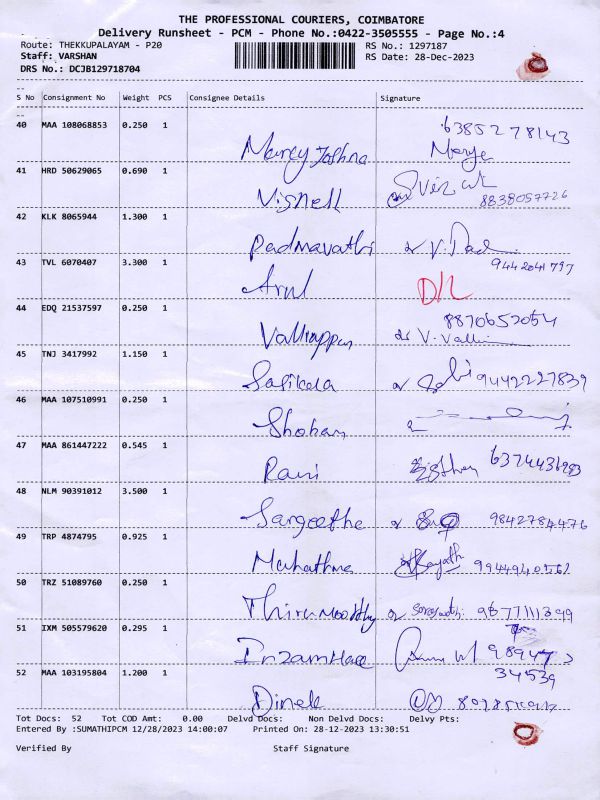 THE PROFESSIONAL COURIERS, COIMBATORE
Delivery Runsheet - PCM - Phone No.:0422-3505555 - Page No.:4
Route: THEKKUPALAYAM - P20 RS No.: 1297187
Staff: VARSHAN RS Date: 28-Dec-2023
DRS No.: DCJB129718704
S No Consignment No Weight PCS Consignee Details Signature
40 MAA 108068853 0.250 1 6385278143
Marcy Joshna
41 HRD 50629065 0.690 1
8838057726
42 KLK 8065944 1.300 1
Padmavathi
43 TVL 6070407 3.300 1 9442041797
Arul
44 EDQ 21537597 0.250 1 8870652054
Valliappan V. Valli
45 TNJ 3417992 1.150 1
Sasikala 9442227839
46 MAA 107510991 0.250 1
Shoban
47 MAA 861447222 0.545 1
Rani
48 NLM 90391012 3.500 1
Sangeetha 9842784476
49 TRP 4874795 0.925 1
9944940562
50 TRZ 51089760 0.250 1
Thirumoorthy 9877111399
51 IXM 505579620 0.295 1
98947
34539
52 MAA 103195804 1.200 1
Tot Docs: 52 Tot COD Amt: 0.00 Delvd Docs: Non Delvd Docs: Delvy Pts:
Entered By :SUMATHIPCM 12/28/2023 14:00:07 Printed On: 28-12-2023 13:30:51
Verified By Staff Signature